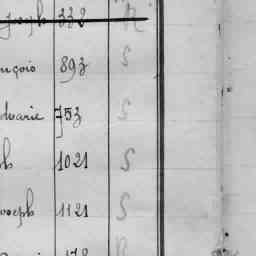 joseph 332 R
nçois 893 S
dmarie 753 S
h 1021 S
oseph 1121 S
178 R